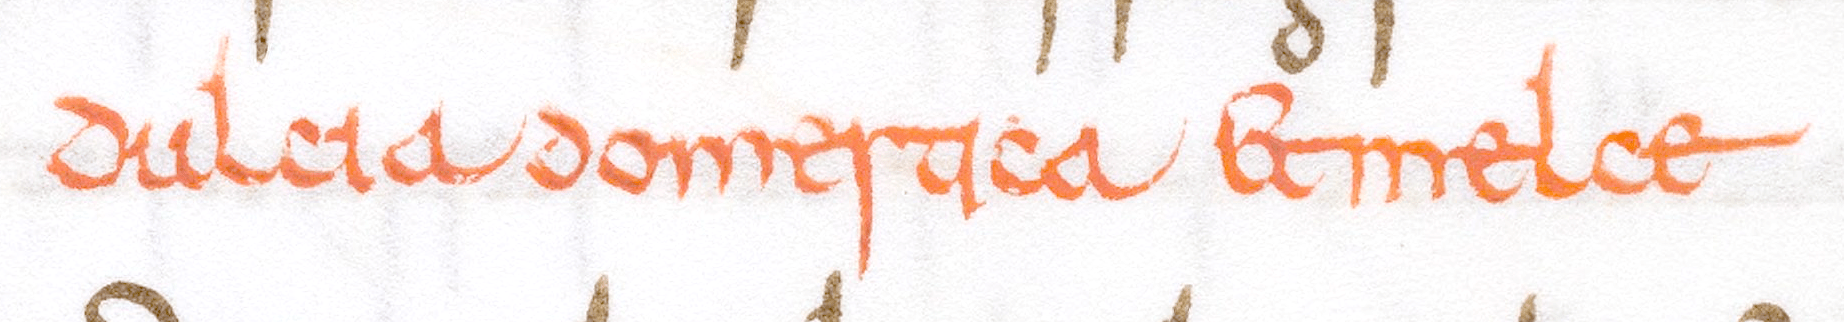 dulcia domestica & melce